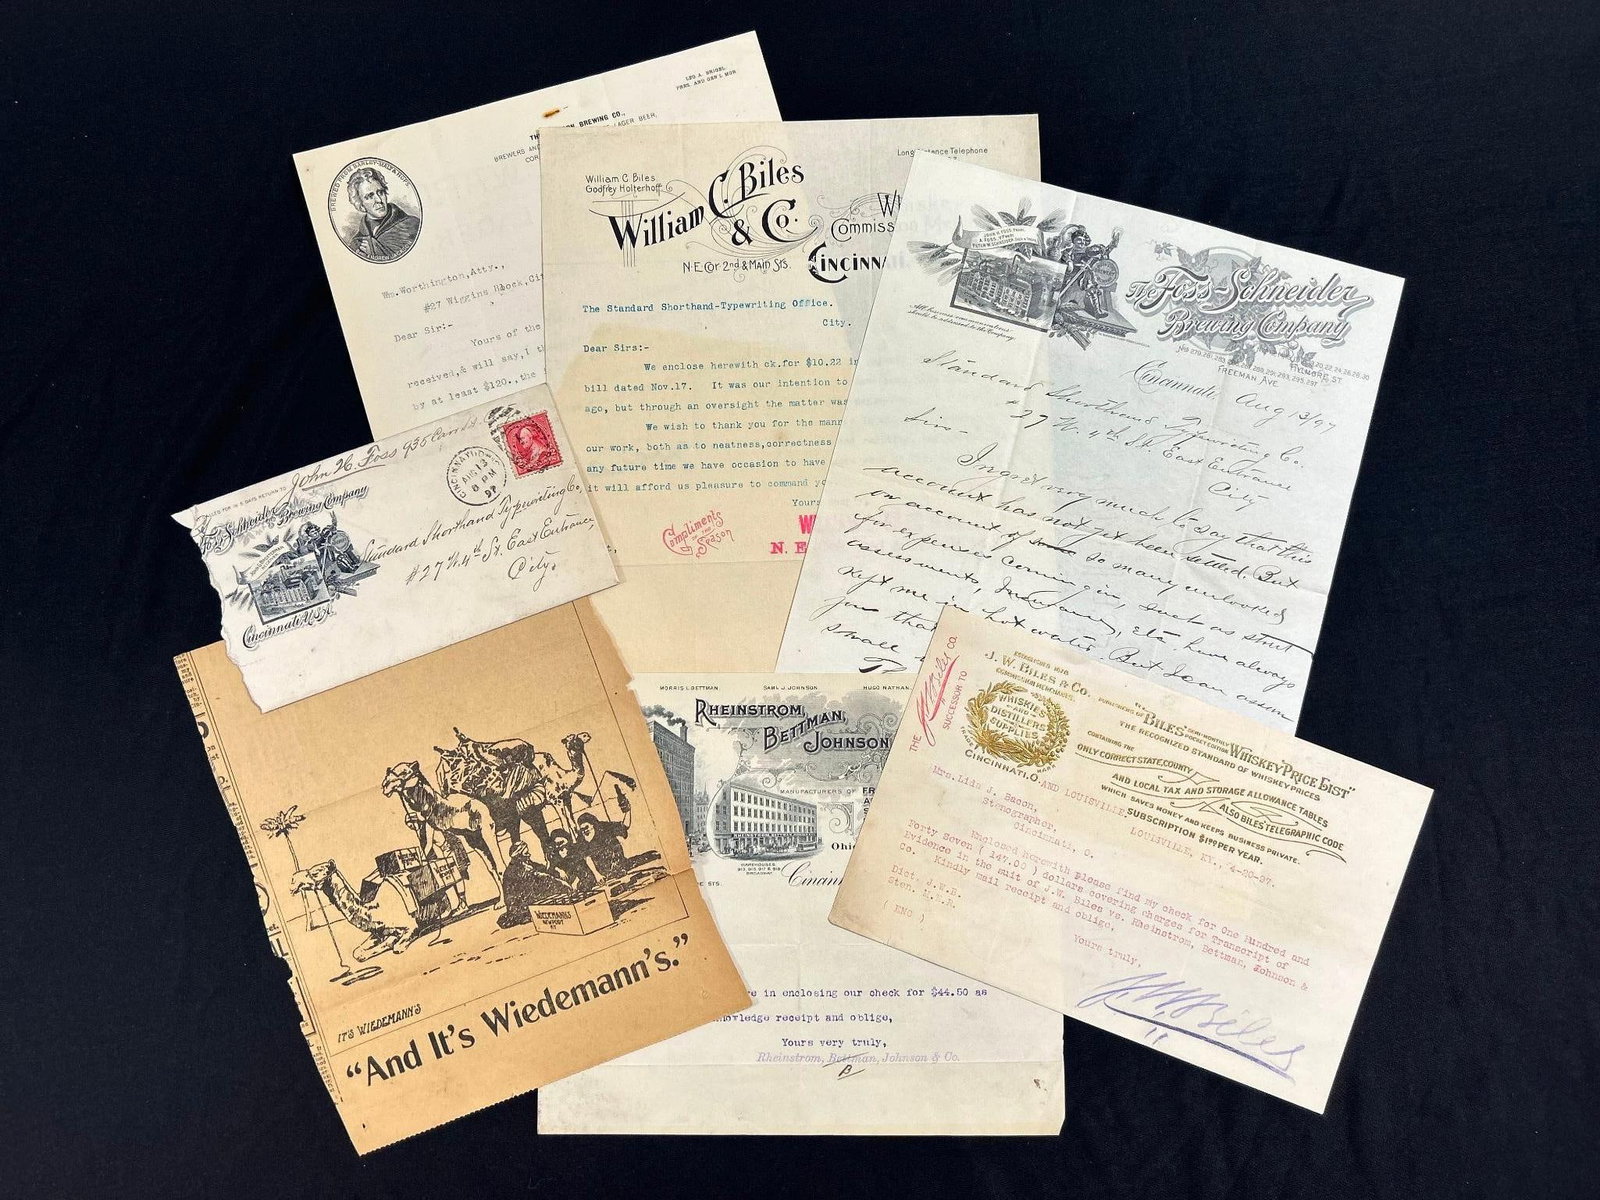 LEO A. BRIGEL,
PRES. AND GEN'L MGR
BREWING CO.,
LAGER BEER,
BREWERS AND
COR
BREWED FROM BARLEY-MALT & HOPS.
Wm. Worthington, Atty.,
#27 Wiggins Block, Cit
Dear Sir:-
Yours of the
received, & will say, I th
by at least $120., the
William C. Biles
Godfrey Holterhoff
William C. Biles
& Co.
N.E. Cor 2nd & Main Sts.
Long Distance Telephone
Wh
Commiss
Cincinna
The Standard Shorthand-Typewriting Office.
City.
Dear Sirs:-
We enclose herewith ck. for $10.22 in
bill dated Nov. 17. It was our intention to
ago, but through an oversight the matter was
We wish to thank you for the mann
our work, both as to neatness, correctness
any future time we have occasion to have
it will afford us pleasure to command yo
Yours
Compliments
of the
Season
W
N. E
JOHN H. FOSS PREST.
All business communications
should be addressed to the Company
The Foss-Schneider
Brewing Company
FILLMORE ST.
FREEMAN AVE.
Cincinnati, Aug 13/97
Standard Shorthand Typewriting Co.
#27 W. 4th St. East Entrance
City
Sirs-
I regret very much to say that this
account has not yet been settled. But
on account of so many unlooked
for expenses coming in, such as street
assessments, Insurance, etc. have always
kept me in hot water. But I can assure
you that
small
CALLED FOR IN 5 DAYS RETURN TO
John H. Foss 935
Foss-Schneider Brewing Company
Cincinnati, U.S.A.
CINCINNATI, O.
AUG 13
8 PM
97
Standard Shorthand Typewriting Co,
#27 W. 4th St. East Entrance,
City.
WIEDEMANN'S
NEWPORT
KY
IT'S WIEDEMANN'S
"And It's Wiedemann's."
MORRIS L. BETTMAN.
SAML J. JOHNSON
HUGO NATHAN.
Rheinstrom,
Bettman,
Johnson
MANUFACTURERS OF FR
WAREHOUSES
913, 915, 917 & 919
BROADWAY
STS.
Ohio
Cincin
re in enclosing our check for $44.50 as
nowledge receipt and oblige,
Yours very truly,
Rheinstrom, Bettman, Johnson & Co.
B
THE
J.W. Biles CO.
SUCCESSOR TO
ESTABLISHED 1878
J. W. BILES & CO.
COMMISSION MERCHANTS.
WHISKIES
AND
DISTILLERS
SUPPLIES
TRADE
MARK
CINCINNATI, O.
AND LOUISVILLE
PUBLISHERS OF "BILES' SEMI-MONTHLY POCKET EDITION WHISKEY PRICE LIST"
THE RECOGNIZED STANDARD OF WHISKEY PRICES
CONTAINING THE
ONLY CORRECT STATE, COUNTY
AND LOCAL TAX AND STORAGE ALLOWANCE TABLES
ALSO BILES' TELEGRAPHIC CODE
WHICH SAVES MONEY AND KEEPS BUSINESS PRIVATE.
SUBSCRIPTION $1.00 PER YEAR.
LOUISVILLE, KY., 4-20-97.
Mrs. Lida J. Bacon,
Stenographer,
Cincinnati, O.
Enclosed herewith please find my check for One Hundred and
Forty Seven ( 147.00 ) dollars covering charges for Transcript of
Evidence in the suit of J.W. Biles vs. Rheinstrom, Bettman, Johnson &
Co. Kindly mail receipt and oblige,
Yours truly,
Dict. J.W.B.
Sten. E.E.R.
( ENC )
J.W. Biles